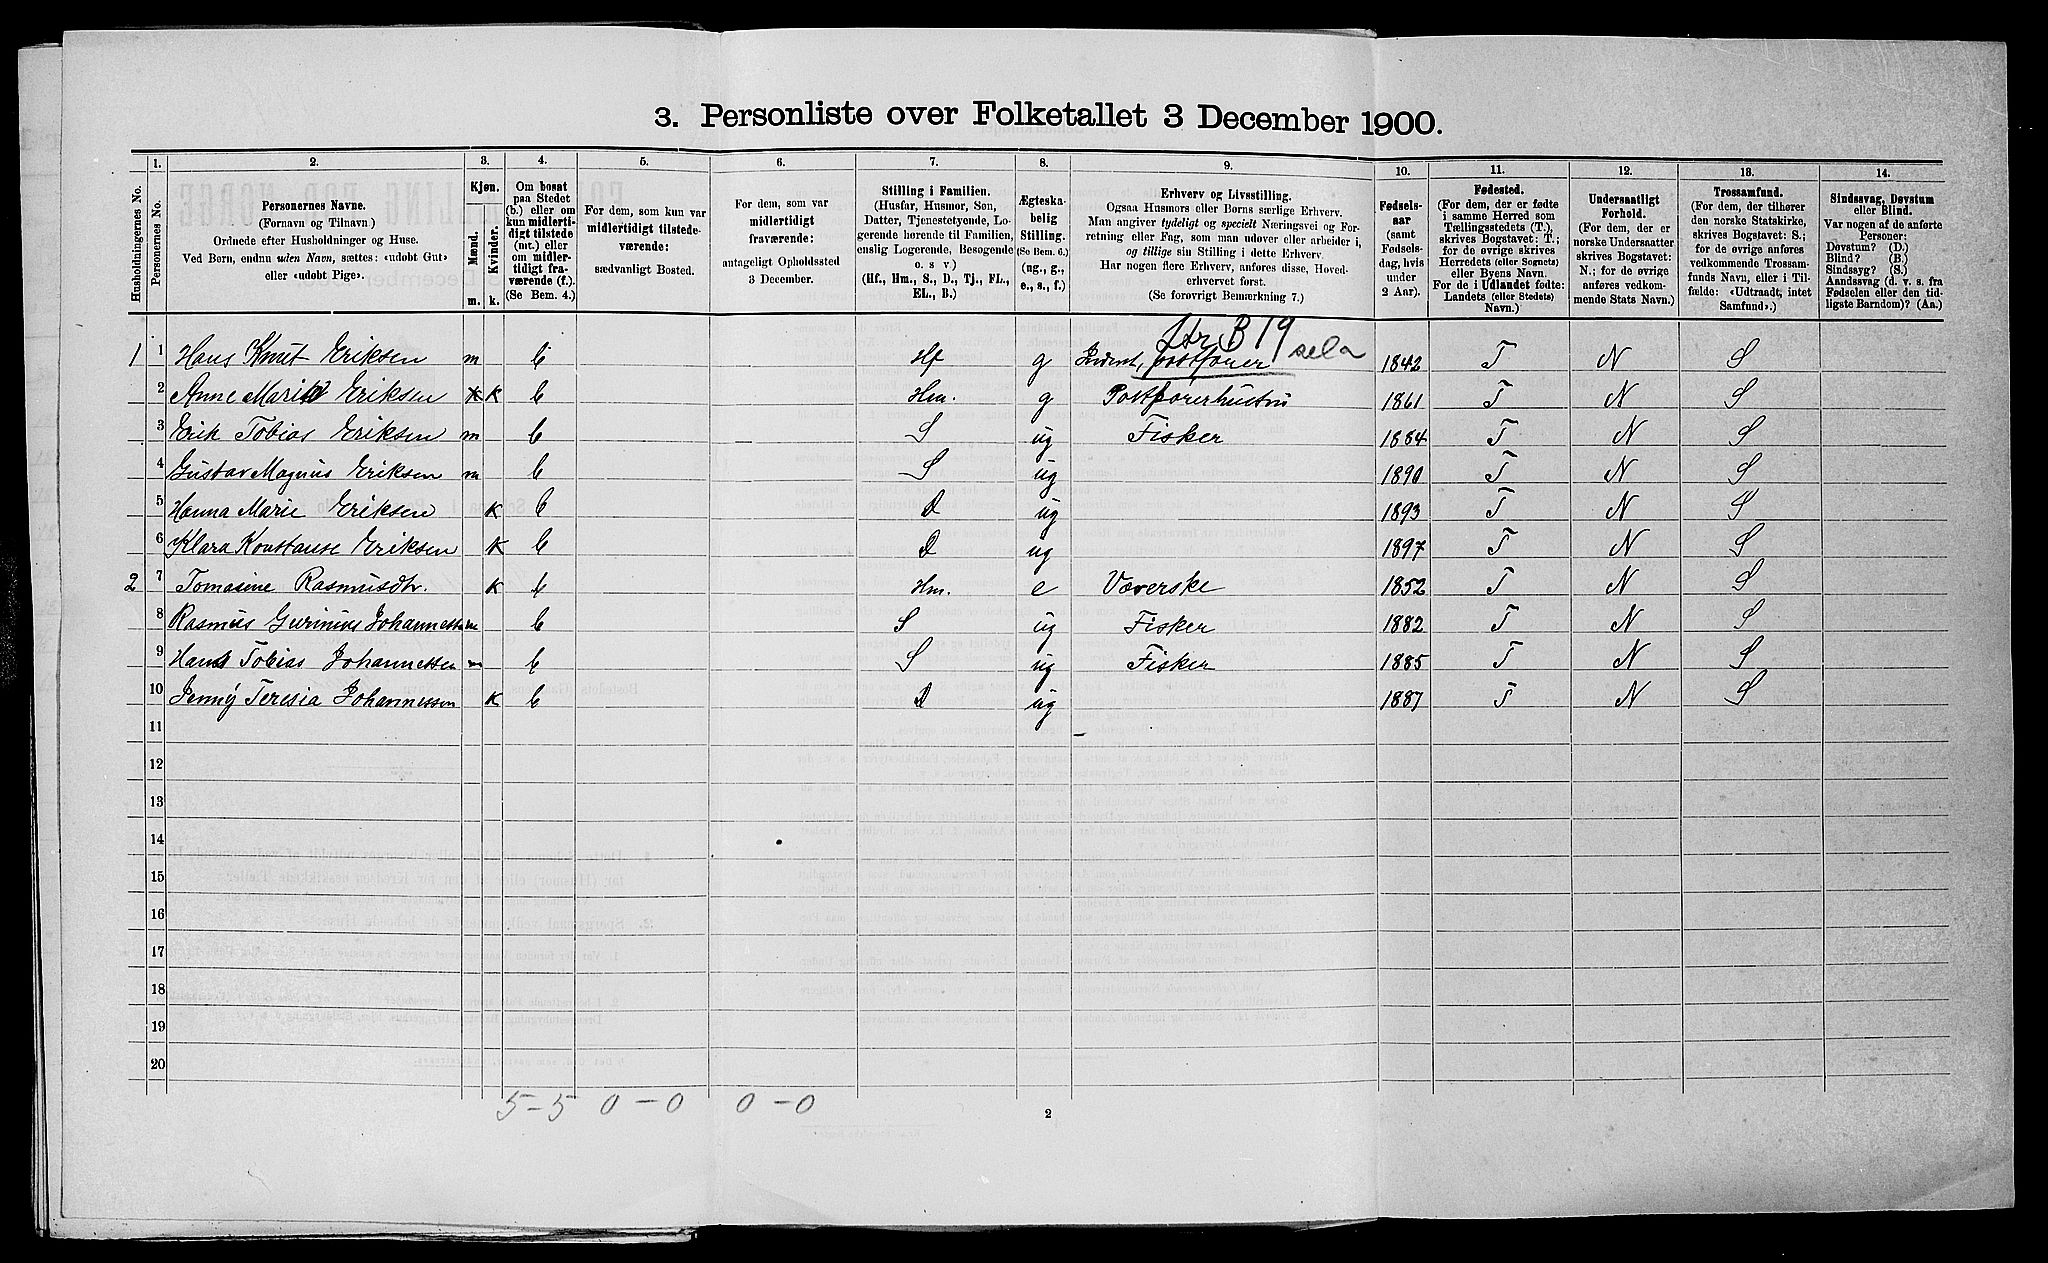 3. Personliste over Folketallet 3 December 1900.
Husholdningernes No.
1.
Personernes No.
2.
Personernes Navne.
(Fornavn og Tilnavn)
Ordnede efter Husholdninger og Huse.
Ved Børn, endnu uden Navn, sættes: «udobt Gut»
eller «udobt Pige».
3.
Kjøn.
Mænd.
Kvinder.
m.
k.
4.
Om bosat
paa Stedet
(b.) eller om
kun midlerti-
digt tilstede
(mt.) eller
om midler-
tidigt fra-
værende (f.).
(Se Bem. 4.)
5.
For dem, som kun var
midlertidigt tilstede-
værende:
sædvanligt Bosted.
6.
For dem, som var
midlertidigt
fraværende:
antageligt Opholdssted
3 December.
7.
Stilling i Familien.
(Husfar, Husmor, Søn,
Datter, Tjenestetyende, Lo-
gerende hørende til Familien,
enslig Logerende, Besøgende
o. s v.)
(Hf., Hm., S., D., Tj., FL.,
EL., B.)
8.
Ægteska-
belig
Stilling.
(Se Bem. 6.)
(ug., g.,
e., s., f.)
9.
Erhverv og Livsstilling.
Ogsaa Husmors eller Børns særlige Erhverv.
Man angiver tydeligt og specielt Næringsvei og For-
retning eller Fag, som man udøver eller arbeider i,
og tillige sin Stilling i dette Erhverv.
Har nogen flere Erhverv, anføres disse, Hoved-
erhvervet først.
(Se forøvrigt Bemærkning 7.)
10.
Fødsels-
aar
(samt
Fødsels-
dag, hvis
under
2 Aar).
11.
Fødested.
(For dem, der er fødte
i samme Herred som
Tællingsstedets (T.),
skrives Bogstavet: T.;
for de øvrige skrives
Herredets (eller Sognets)
eller Byens Navn.
For de i Udlandet fødte:
Landets (eller Stedets)
Navn.)
12.
Undersaatligt
Forhold.
(For dem, der er
norske Undersaatter
skrives Bogstavet:
N.; for de øvrige
anføres vedkom-
mende Stats Navn.)
13.
Trossamfund.
(For dem, der tilhører
den norske Statskirke,
skrives Bogstavet: S.;
for de øvrige anføres
vedkommende Trossam-
funds Navn, eller i Til-
fælde: «Udtraadt, intet
Samfund».)
14.
Sindssvag, Døvstum
eller Blind.
Var nogen af de anførte
Personer:
Døvstum? (D.)
Blind? (B.)
Sindssyg? (S.)
Aandssvag (d. v. s. fra
Fødselen eller den tid-
ligste Barndom)? (Aa.)
Str B 19
1 1 Hans Knut Eriksen m b Hf g postfører 1842 T N S
2 Anne Marie Eriksen k b Hm. g Postførerhustru 1861 T N S
3 Erik Tobias Eriksen m b S ug Fisker 1884 T N S
4 Gustav Magnus Eriksen m b S ug 1890 T N S
5 Hanna Marie Eriksen k b D ug 1893 T N S
6 Klara Konstanse Eriksen k b D ug 1897 T N S
2 7 Tomasine Rasmusdtr. k b Hm. e Væverske 1852 T N S
8 Rasmus Johannessen m b S ug Fisker 1882 T N S
9 Hans Tobias Johannessen m b S ug Fisker 1885 T N S
10 Jenny Teresia Johannessen k b D ug 1887 T N S
11
12
13
14
15
16
17
18
19
20
5-5 0-0 0-0
2